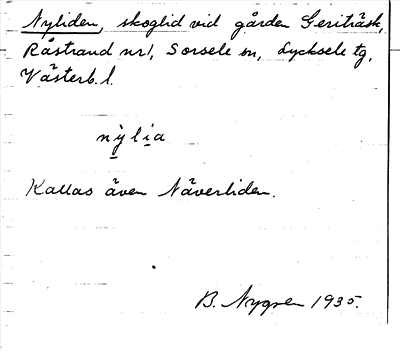 Nyliden, skoglid vid gården Geriträsk,
Råstrand nr 1, Sorsele sn, Lycksele tg,
Västerb. l.
nỳlia
Kallas även Näverliden.
B. Nygren 1935.